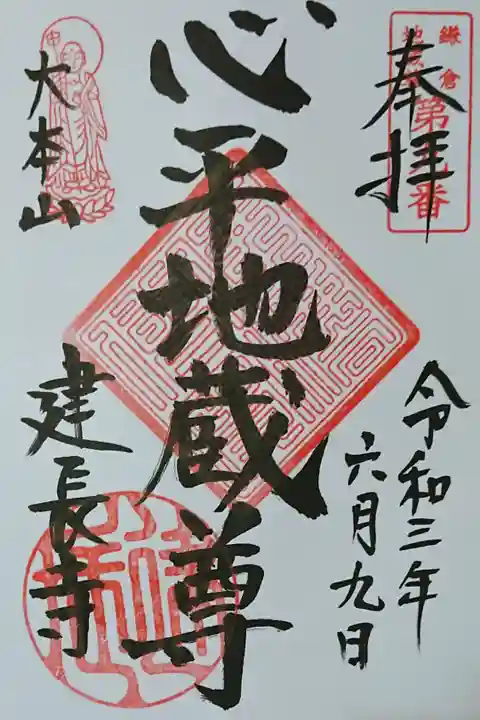 奉拝
令和三年
六月九日
心平地蔵尊
大本山
建長寺
鎌倉